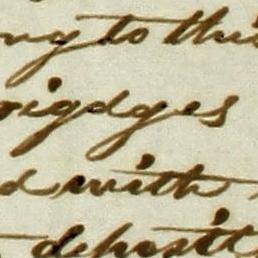 ng to this
oigdges
d with
deposit